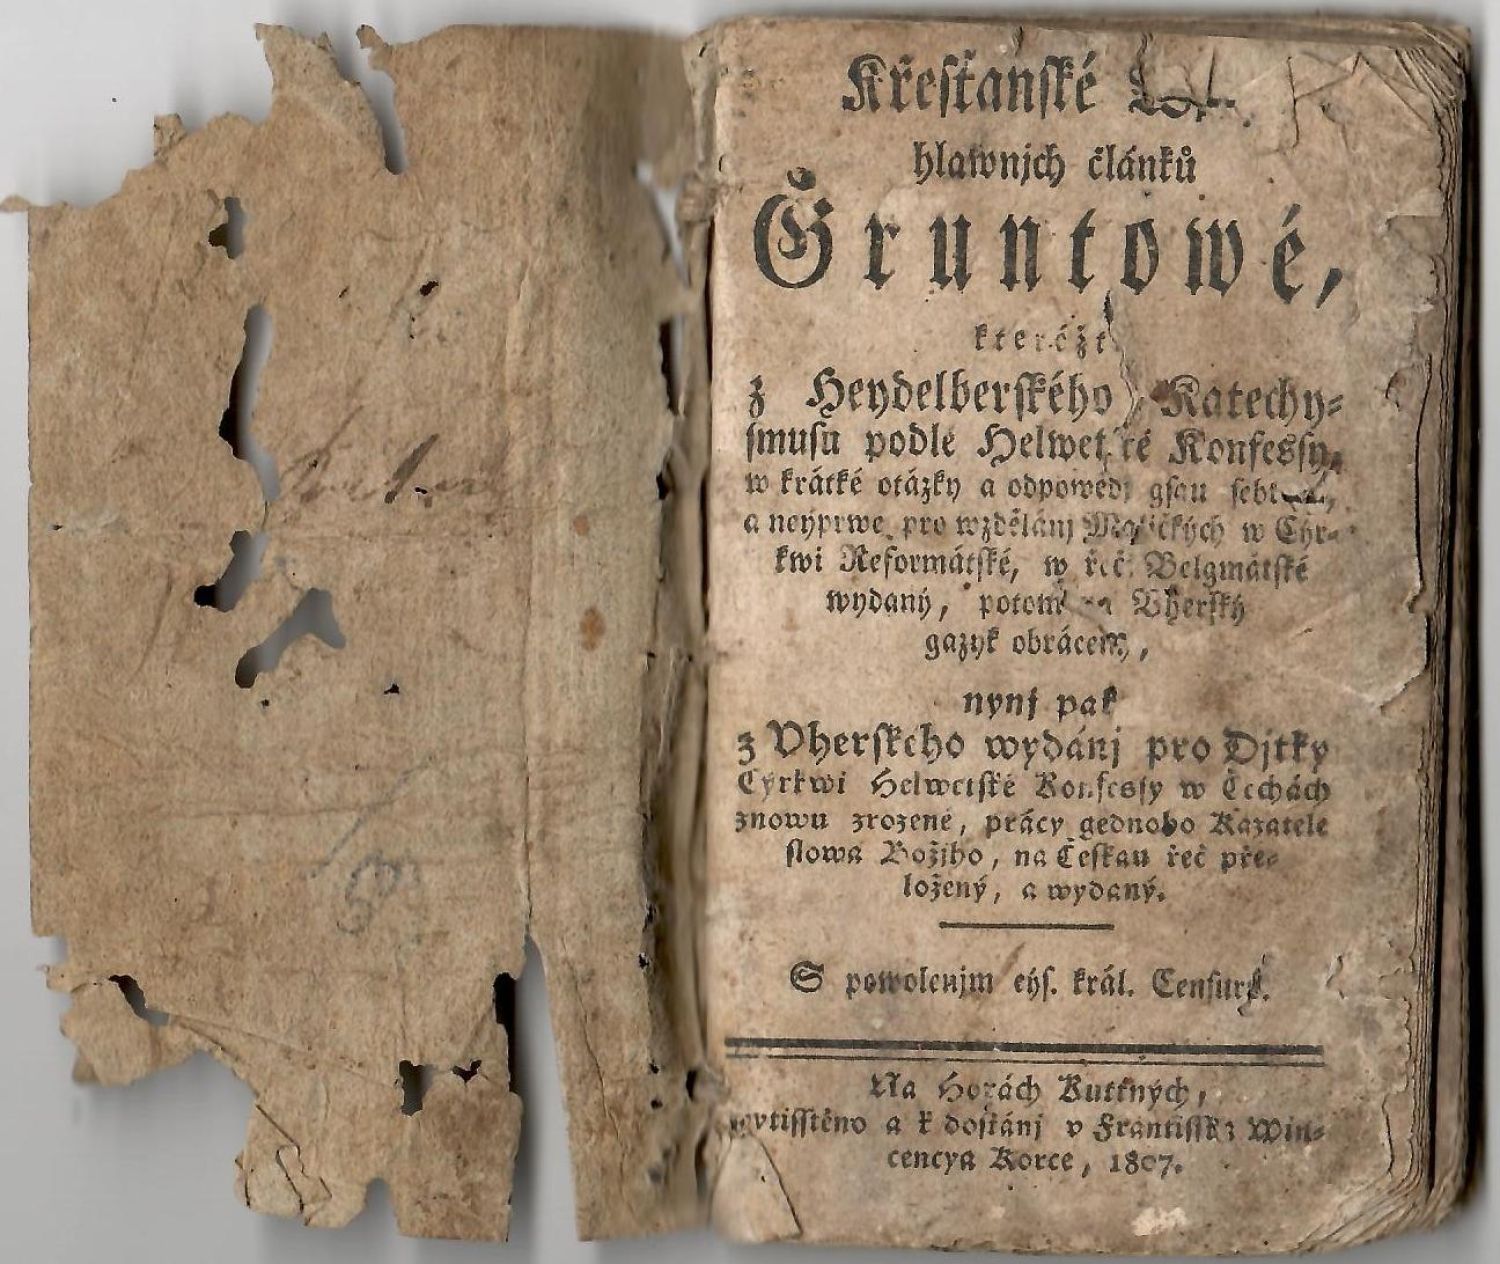 Křesťanské
hlawnjch článků
Ǧruntowé,
kteréžt
z Heydelberského Katechy-
smusu podlé Helwetské Konfessy,
w krátké otázky a odpowědi gsau
a neyprwe pro wzdělánj Maličkých w Cýr-
kwi Reformátské, w řeči Belgmátské
wydaný, potom na Vherský
gazyk obrácený,
nynj pak
z Vherského wydánj pro Djtky
Cýrkwi Helwetské Konfessy w Čechách
znowu zrozené, prácy gednoho Kazatele
slowa Božjho, na Českau řeč pře-
ložený, a wydaný.
S powolenjm cýs. král. Censury.
Na Horách Kuttných,
wytisstěno a k dostánj v Frantisska Win-
cencya Korce, 1807.